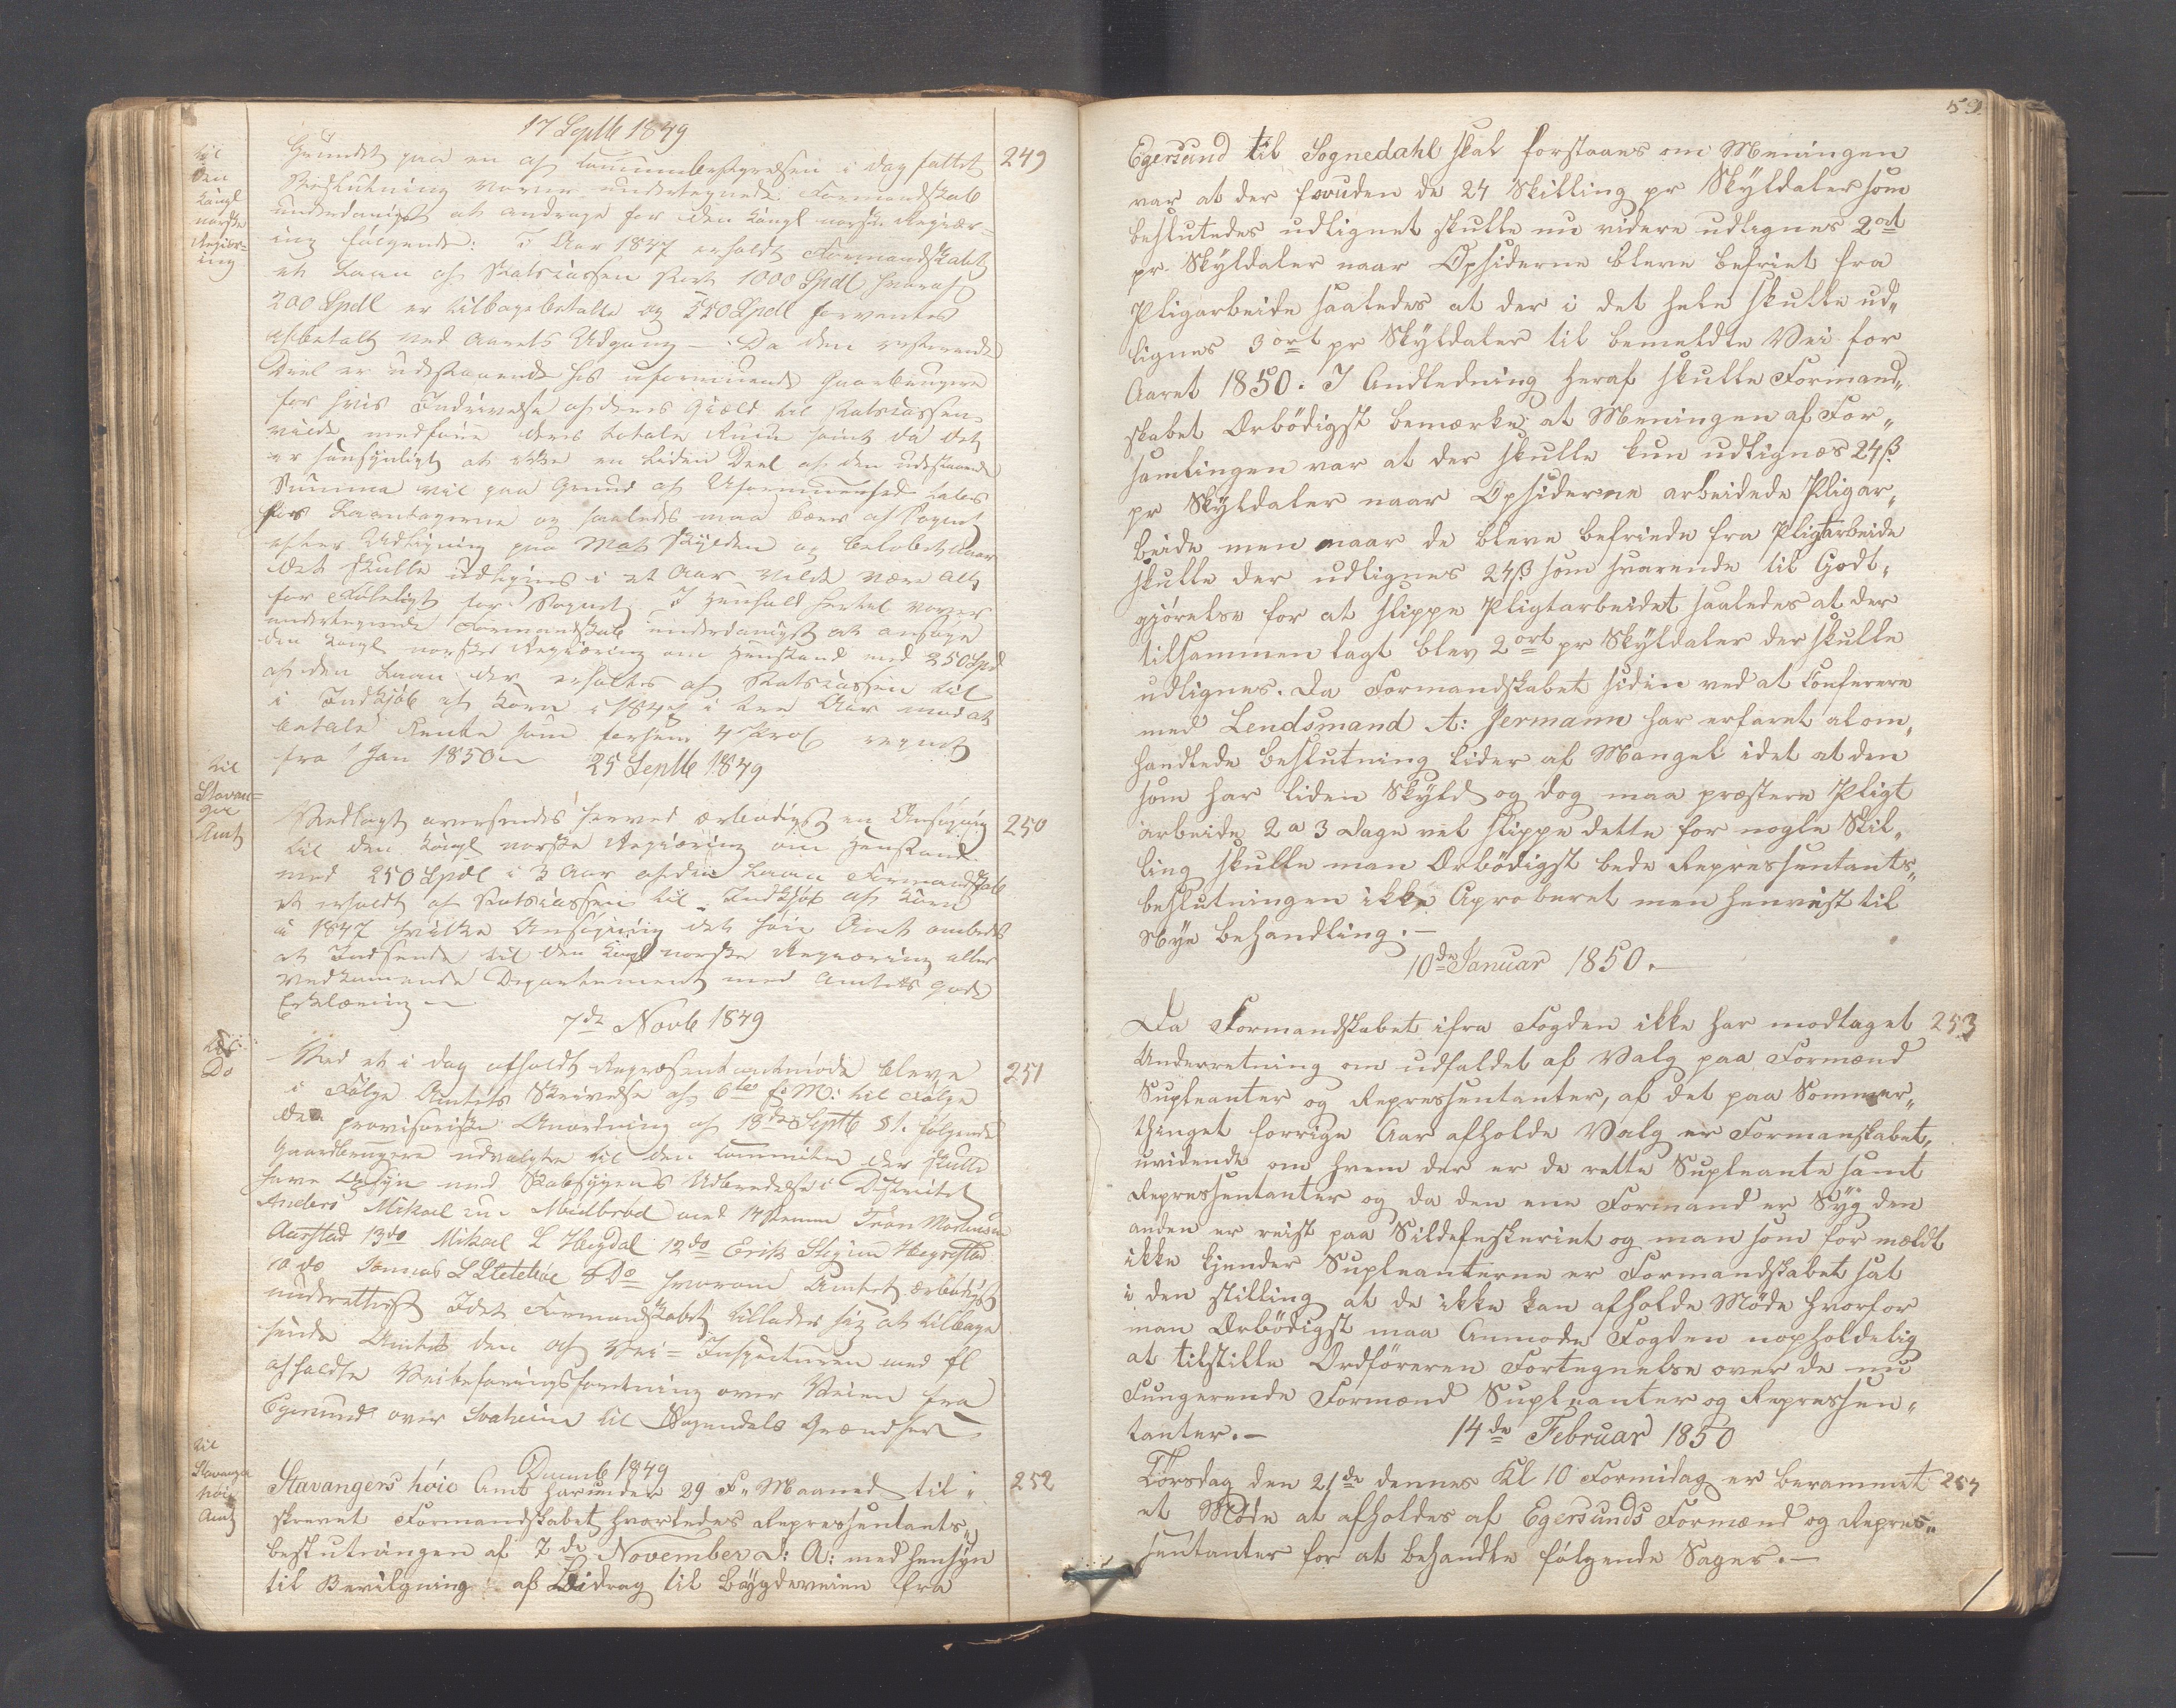 17 Septb 1849
til
Den
Kongl
norske
Regjer-
ing
249
Grundet paa en af Communebestyrelsen i dag fattet
Beslutning vover undertegnede Formandskab
underdanigst at andrage for den kongl norske Regjær-
ing følgende: I Aar 1847 erholdt Formandskabet
et Laan af Statscassen stort 1000 Spdl hvoraf
200 Spdl er tilbagebetalte og 550 Spdl forventes
afbetalt ved Aarets Udgang – Da den resterende
Deel er udestaaende hos uformuende Gaardbrugere
for hvis Inddrivelse af deres Gjæld til Statscassen
vilde medføre deres totale Ruin samt da det
er sansynligt at ikke en liden Deel af den udestaaende
Summa vil paa Grund af Uformuenhed tabes
hos Laantagerne og saaledes maa bæres af Sognet
efter Udligning paa Mat Skylden og Beløbet naar
det skulle udlignes i et Aar vilde være alt
for føleligt for Sognet I henhold hertil vover
undertegnede Formandskab underdanigst at ansøge
den kongl norske Regjæring om Henstand med 250 Spd
af den Laan der erholtes af Statscassen til
i Indkjøb af Korn i 1847 i tre Aar mod at
betale Rente som forhen 4 Proc regnet
fra 1 Jan 1850
25 Septb 1849
til
Stavan=
ger
Amt
250
Vedlagt oversendes herved ærbødigst en Ansøgning
til den kongl norske Regjæring om Henstand
med 250 Spdl i 3 Aar af den Laan Formandskab
et erholdt af Statscassen til Indkjøb af Korn
i 1847 hvilken Ansøgning det høie Amt ombedes
at Indsende til den Kongl norske Regjæring eller
vedkommende Departement med Amtets gode
Erklæring
7de Novb 1849
til
Do
251
Ved et i dag afholdt Repræsentantmøde bleve
i Følge Amtets Skrivelse af 6te f: M: til Følge
den provisoriske Anordning af 18de Septb d. følgende
Gaardbrugere udvalgte til den Committee der skulle
have Opsyn med Skabsygens Udbredelse i Distriktet
Anders Mikael Midbrød med 14 stemmer Tron Mortensen
Aarstad 13do Mikael L Hegdal 12do Erik Hegrestad
10 do Tomas L Sletebøe 8 Do hvorom Amtet ærbødigst
underrettes Idet Formandskabet tillader sig at tilbage
sende Amtet den af Vei=Inspecteuren med fl
afholdte Veibefaringsforretning over Veien fra
Egersund over Svaheim til Sogndals Grændse
Decemb 1849
til
Stavanger
høie
Amt
252
Stavangers høie Amt har under 29 F. Maaned til=
skrevet Formandskabet hvorledes Repressentants=
beslutningen af 7de November d: A: med hensyn
til Bevilgning af Bidrag til Bøygdeveien fra
59
Egersund til Sognedahl skal forstaaes om Meningen
var at der foruden de 24 Skilling pr Skyldaler som
besluttedes udlignet skulle nu videre udlignes 2 ort
pr. Skyldaler naar Opsiderne bleve befriet fra
Pligarbeide saaledes at der i det hele skulle ud„
lignes 3 ort pr Skyldaler til bemeldte Vei for
Aaret 1850. I Andledning heraf skulle Formand„
skabet Ærbødigst bemærke at Meningen af For„
samlingen var at der skulle kun udlignes 24ß
pr Skyldaler naar Opsiderne arbeidede Pligar„
beide men naar de bleve befriede fra Pligtarbeide
skulle der udlignes 24ß som svarende til Godt„
gjørelse for at slippe Pligtarbeidet saaledes at der
tilsammen lagt blev 2 ort pr Skyldaler der skulle
udlignes. Da Formandskabet siden ved at Conferere
med Lendsmand A: Jermann har erfaret at om„
handlede beslutning lider af Mangel idet at den
som har liden Skyld og dog maa præstere Pligt
arbeide 2 a 3 Dage vel slippe dette for nogle Skil„
ling skulle man Ærbødigst bede Repressentants„
beslutningen ikke Aproberet men henvist til
Nye behandling.–
10de Januar 1850.–
Da Formandskabet ifra Fogden ikke har modtaget 253
Underretning om udfaldet af Valg paa Formænd
Supleanter og Repressentanter, af det paa Sommer„
thinget forrige Aar afholde Valg er Formanskabet
uvidende om hvem der er de rette Supleante samt
Repressentanter og da den ene Formand er Syg den
anden er reist paa Sildefeskeriet og man som formeldt
ikke kjender Supleanterne er Formandskabet sat
i den stilling at de ikke kan afholde Møde hvorfor
man Ærbødigst maa Anmode Fogden uopholdelig
at tilstille Ordføreren Fortegnelse over de nu
Fungerende Formænd Supleanter og Repressen„
tanter.–
14de Februar 1850
Torsdag den 21de dennes Kl 10 Formidag er berammet 254
et Møde at afholdes af Egersunds Formænd og Repres„
sentanter for at behandle følgende Sager.–